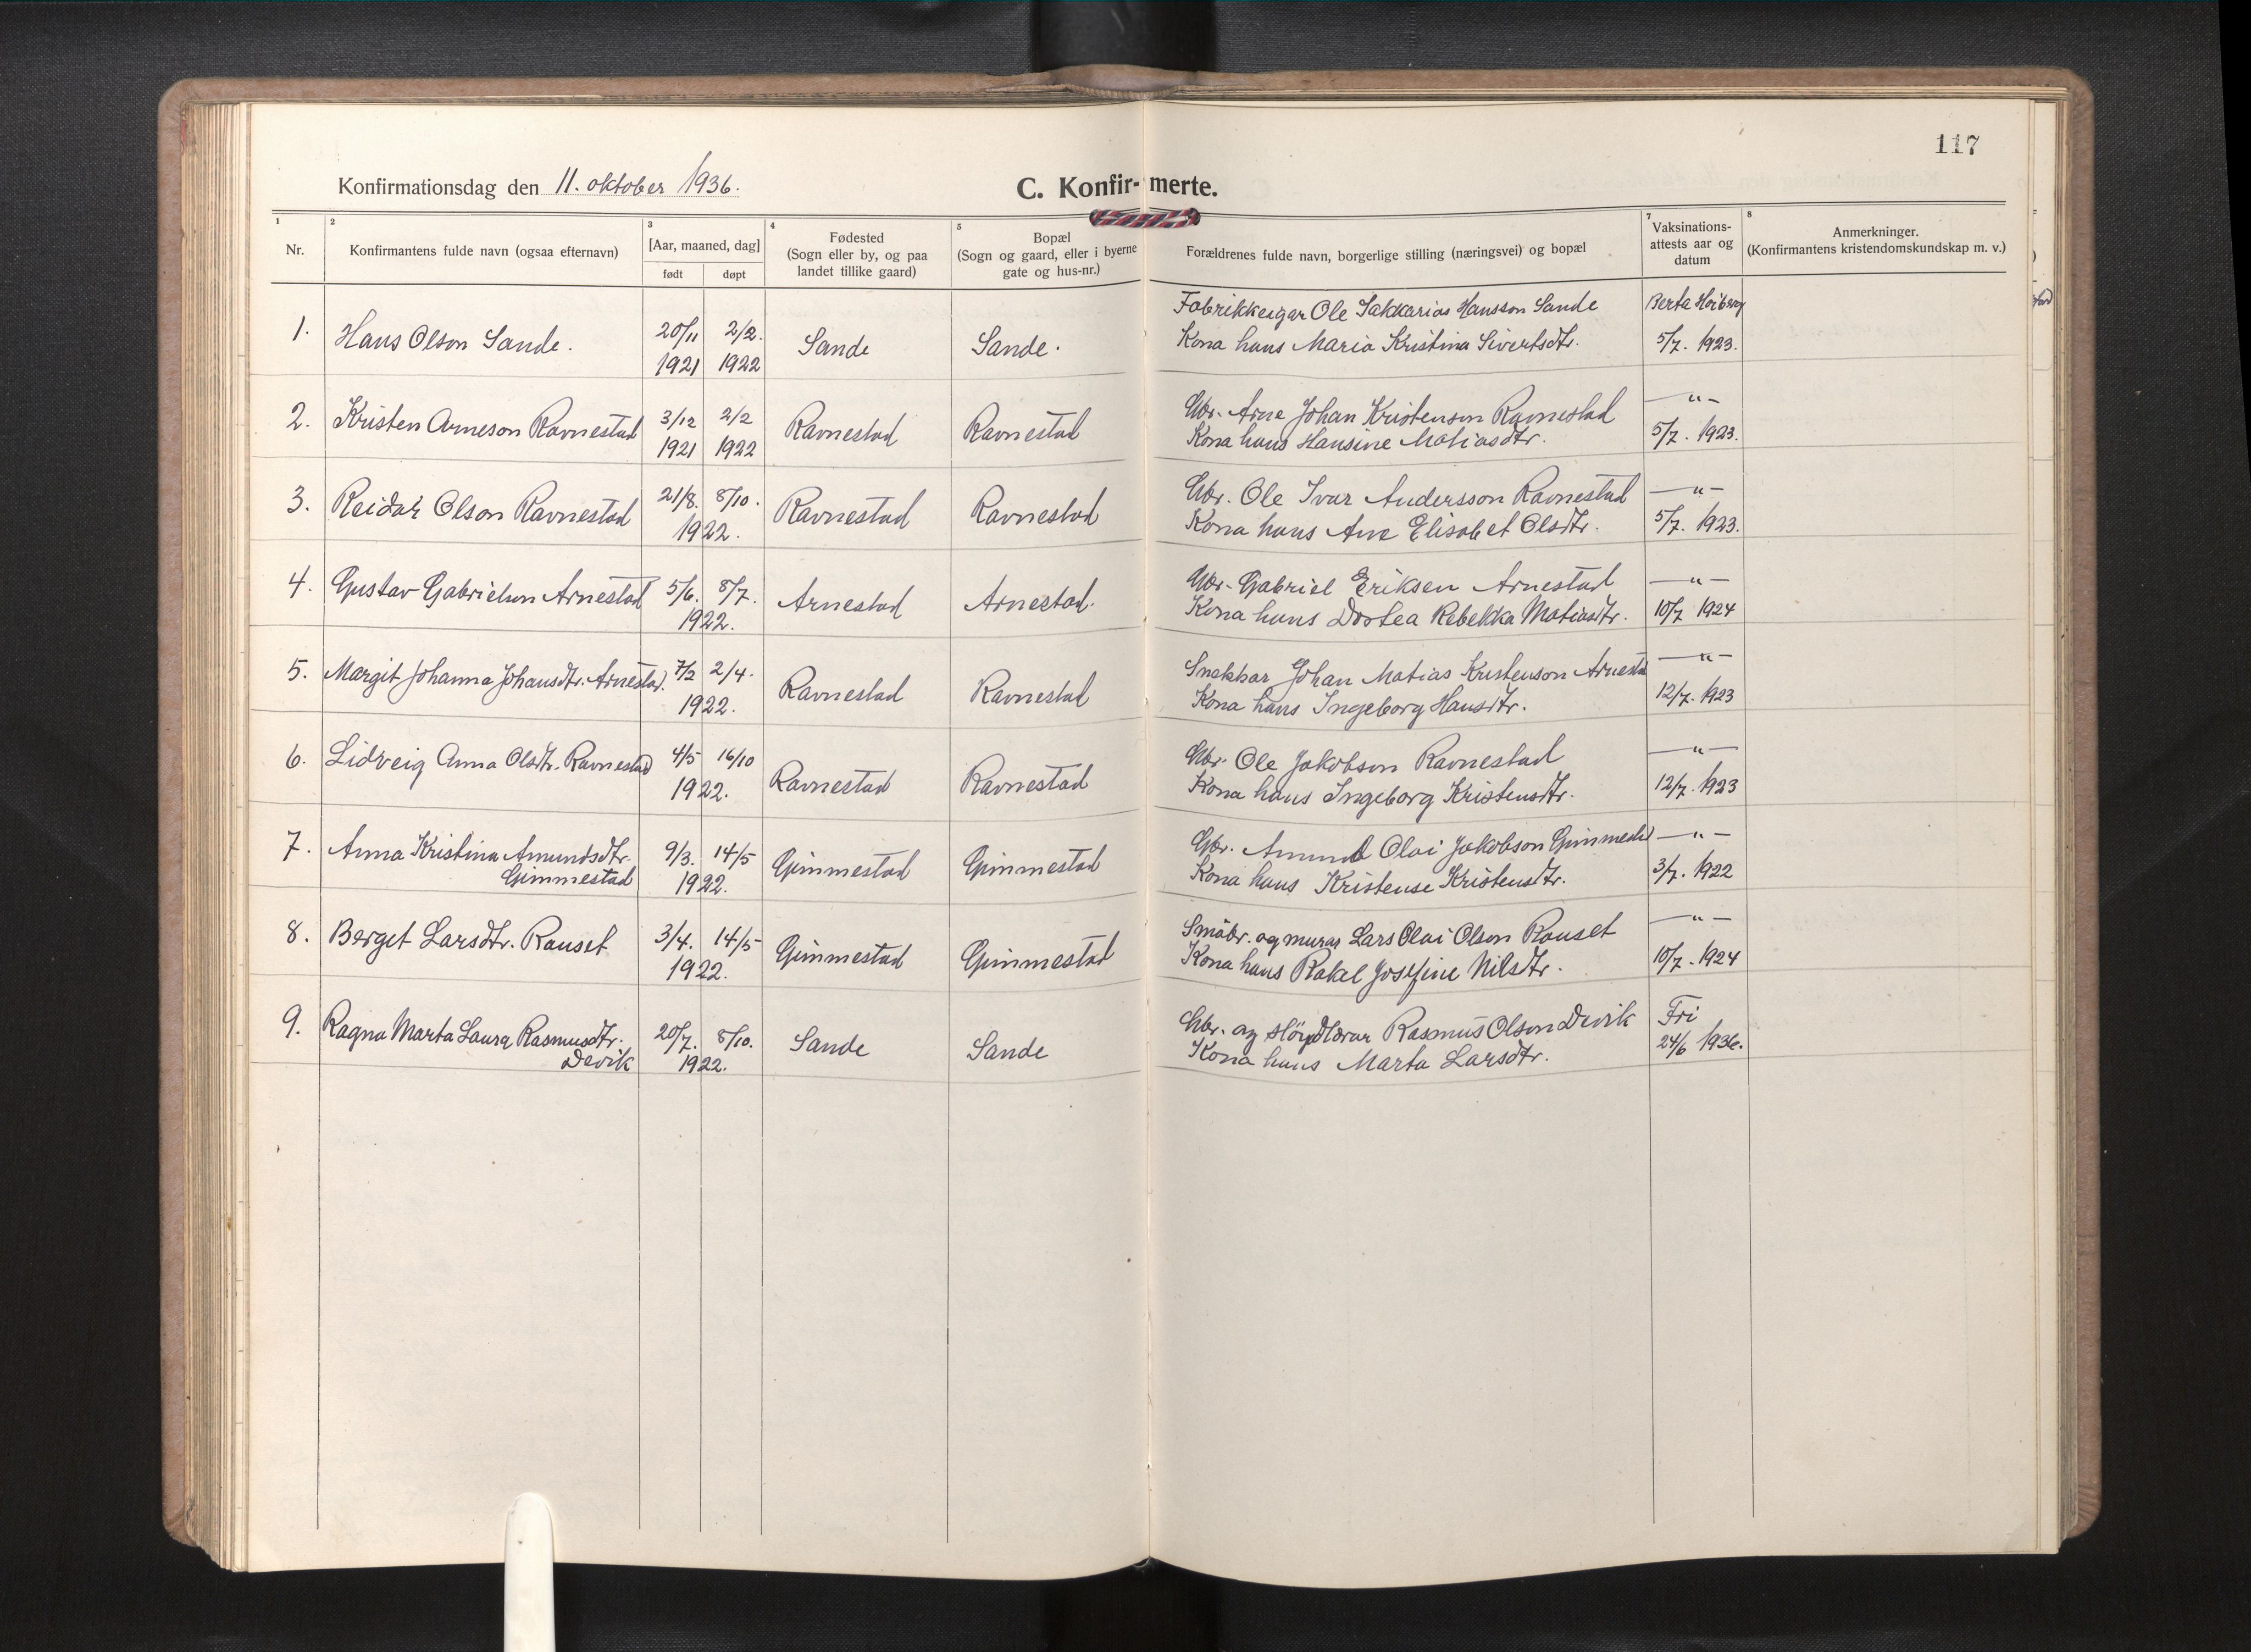 117
Konfirmationsdag den 11. oktober 1936.
C. Konfir- merte.
1 2 3 4 5 7 8
Nr.
Konfirmantens fulde navn (ogsaa efternavn)
[Aar, maaned, dag]
født døpt
Fødested
(Sogn eller by, og paa
landet tillike gaard)
Bopæl
(Sogn og gaard, eller i byerne
gate og hus-nr.)
Forældrenes fulde navn, borgerlige stilling (næringsvei) og bopæl
Vaksinations-
attests aar og
datum
Anmerkninger.
(Konfirmantens kristendomskundskap m. v.)
Fabrikkeigar Ole Sakkarias Hansson Sande Berta
1. Hans Olson Sande. 20/11 2/2. Sande Sande. Kona hans Maria Kristina Sivertsdtr. 5/7. 1923.
1921 1922
Gbr. Arne Johan Kristenson Ravnestad —"—
2. Kristen Arneson Ravnestad 3/12 2/2 Ravnestad Ravnestad Kona hans Hansine Matiasdtr. 5/7. 1923.
1921 1922
Gbr. Ole Ivar Andersson Ravnestad —"—
3. Reidar Olson Ravnestad 21/8. 8/10. Ravnestad Ravnestad Kona hans Ane Elisabet Olsdtr. 5/7. 1923.
1922.
Gbr. Gabriel Eriksen Arnestad —"—
4. Gustav Gabrielson Arnestad 5/6. 8/7. Arnestad Arnestad. Kona hans Dortea Rebekka Matiasdtr. 10/7 1924
1922.
Snekkar Johan Matias Kristenson Arnestad —"—
5. Margit Johanna Johansdtr. Arnestad. 7/2 2/4. Ravnestad Ravnestad Kona hans Ingeborg Hansdtr. 12/7. 1923
1922.
Gbr. Ole Jakobson Ravnestad —"—
6. Lidveig Anna Olsdtr. Ravnestad 4/5 16/10 Ravnestad Ravnestad Kona hans Ingeborg Kristensdtr. 12/7. 1923
1922.
Gbr. Amund Olai Jakobson Gimmestad —"—
7. Anna Kristina Amundsdtr. 9/3. 14/5 Gimmestad Gimmestad Kona hans Kristense Kristensdtr. 3/7. 1922
Gimmestad 1922.
Småbr. og murar Lars Olai Olson Rauset —"—
8. Berget Larsdtr. Rauset 3/4. 14/5 Gimmestad Gimmestad Kona hans Rakel Josefine Nilsdtr. 10/7. 1924
1922.
Gbr. og sløydlærar Rasmus Olson Devik Fri
9. Ragna Marta Laura Rasmusdtr. 20/7. 8/10. Sande Sande Kona hans Marta Larsdtr. 24/6 1936.
Devik 1922.